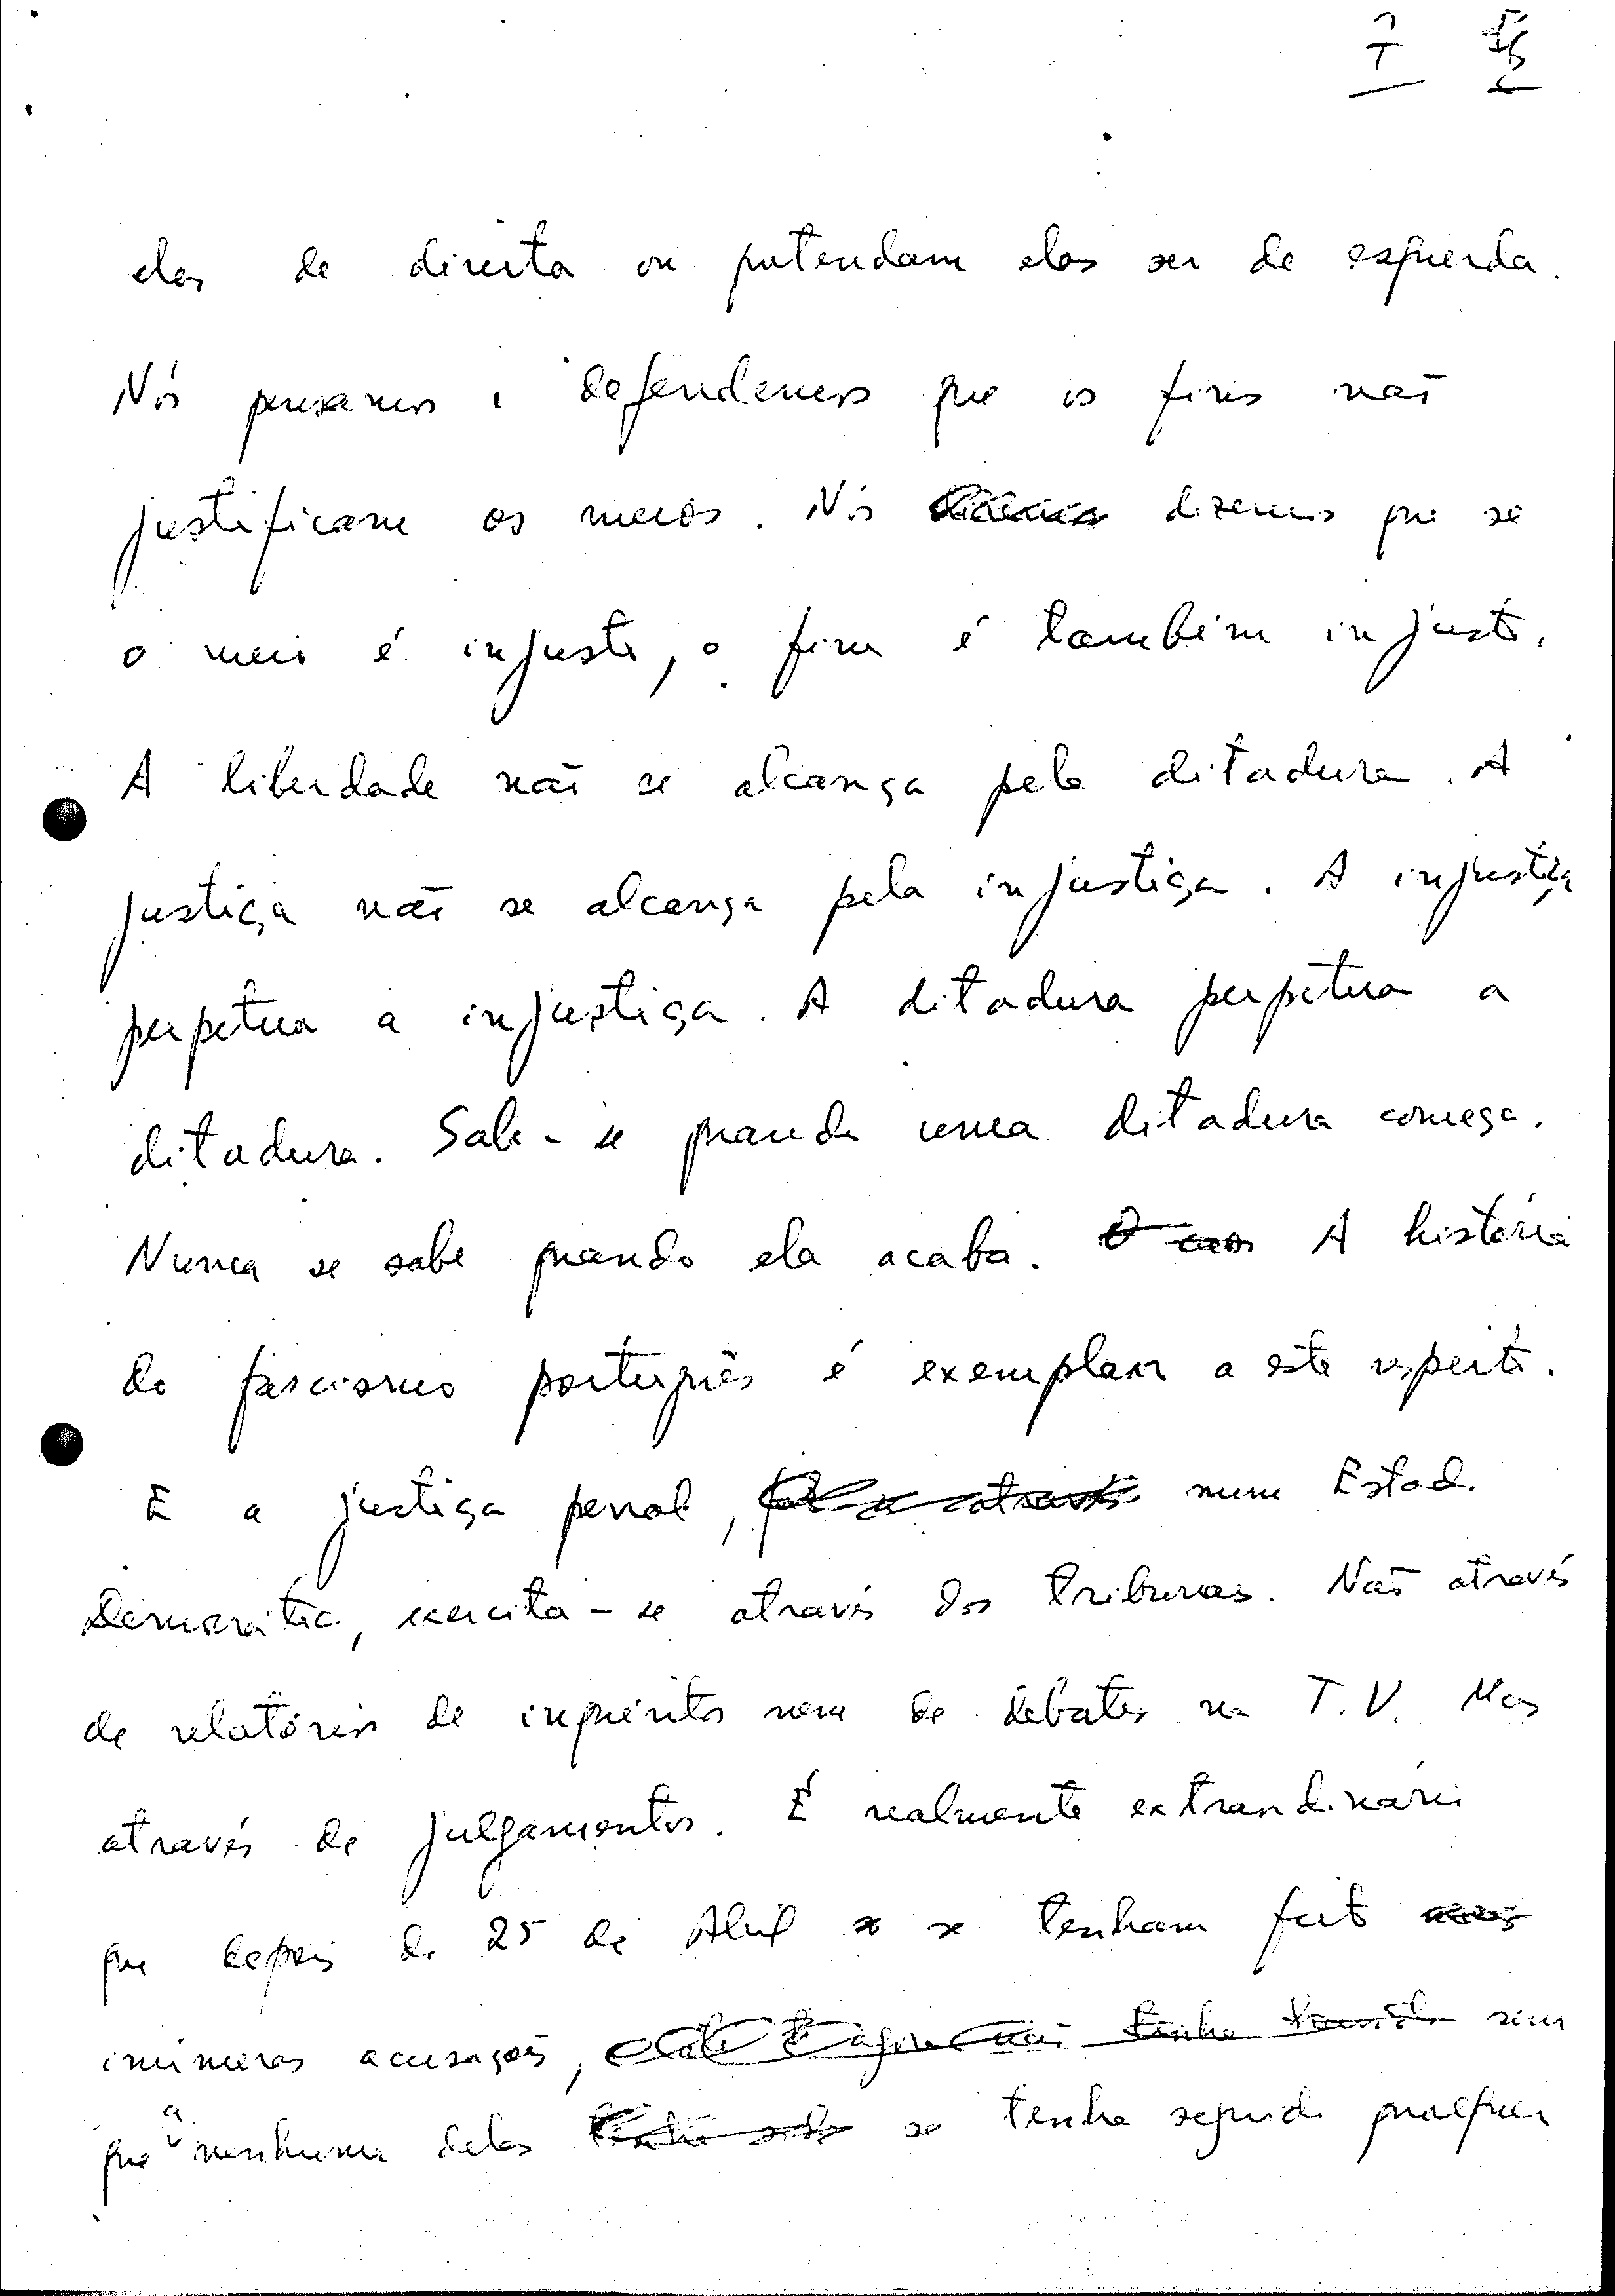 7
elas de direita ou pretendam elas ser de esquerda.
Nós pensamos e defendemos que os fins não
justificam os meios. Nós dizemos que se
o meio é injusto, o fim é também injusto.
A liberdade não se alcança pela ditadura. A
justiça não se alcança pela injustiça. A injustiça
perpetua a injustiça. A ditadura perpetua a
ditadura. Sabe-se quando uma ditadura começa.
Nunca se sabe quando ela acaba. O caso A história
do fascismo português é exemplar a este respeito.
E a justiça penal, num Estado
Democrático, exercita-se através dos tribunais. Não através
de relatórios de inquéritos nem de debates na T.V. Mas
através de julgamentos. É realmente extraordinário
que depois do 25 de Abril se tenham feito
inúmeras acusações, sem
que a nenhuma delas tenha sido se tenha seguido qualquer